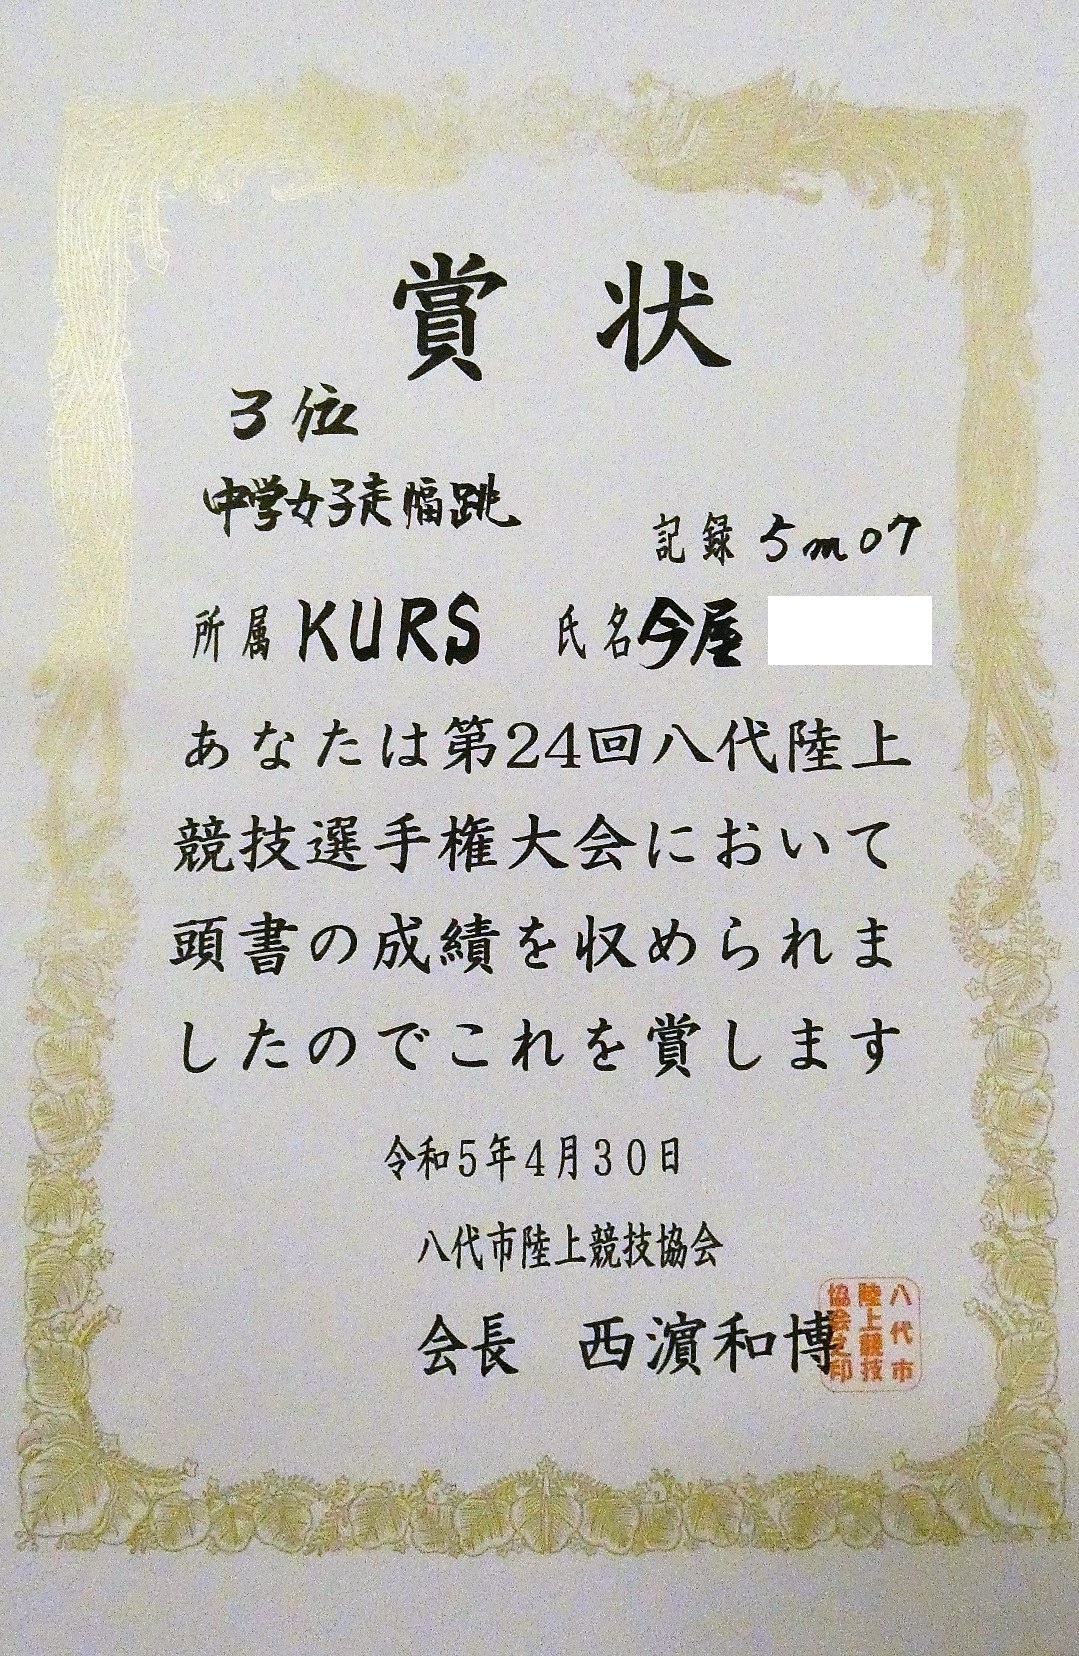 賞状
3位
中学女子走幅跳
記録 5m07
所属 KURS 氏名 今屋
あなたは第24回八代陸上
競技選手権大会において
頭書の成績を収められま
したのでこれを賞します
令和5年4月30日
八代市陸上競技協会
会長 西濵和博
八代市
陸上競技
協会之印